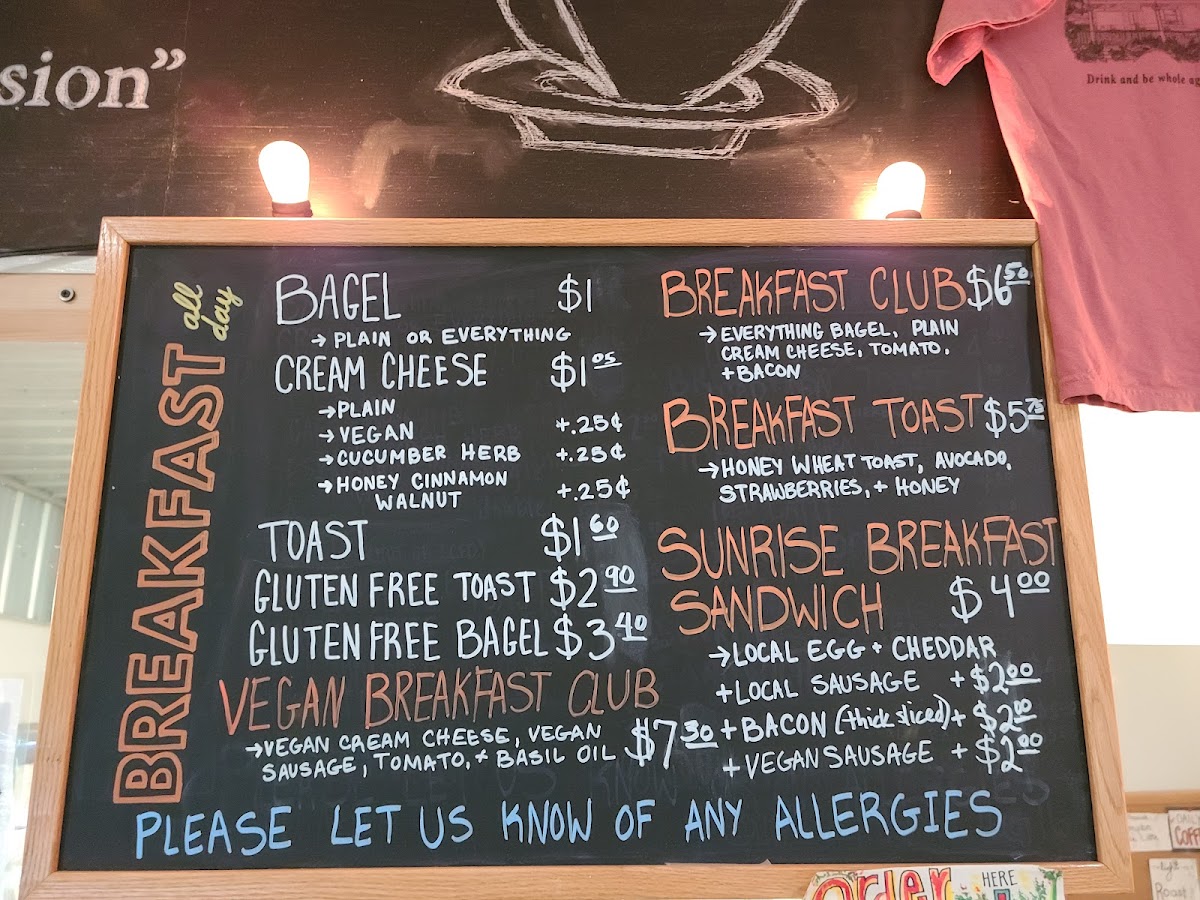 sion”
Drink and be whole ag
BREAKFAST all day
BAGEL $1
→ PLAIN OR EVERYTHING
CREAM CHEESE $1 05
→ PLAIN
→ VEGAN +.25¢
→ CUCUMBER HERB +.25¢
→ HONEY CINNAMON
WALNUT +.25¢
TOAST $1 60
GLUTEN FREE TOAST $2 90
GLUTEN FREE BAGEL $3 40
VEGAN BREAKFAST CLUB
→ VEGAN CREAM CHEESE, VEGAN
SAUSAGE, TOMATO, + BASIL OIL $7 30
BREAKFAST CLUB $6 50
→ EVERYTHING BAGEL, PLAIN
CREAM CHEESE, TOMATO,
+ BACON
BREAKFAST TOAST $5 75
→ HONEY WHEAT TOAST, AVOCADO,
STRAWBERRIES, + HONEY
SUNRISE BREAKFAST
SANDWICH $4 00
→ LOCAL EGG + CHEDDAR
+ LOCAL SAUSAGE + $2 00
+ BACON (thick sliced) + $2 00
+ VEGAN SAUSAGE + $2 00
PLEASE LET US KNOW OF ANY ALLERGIES
Order HERE
DAILY
COFF
light
Roast